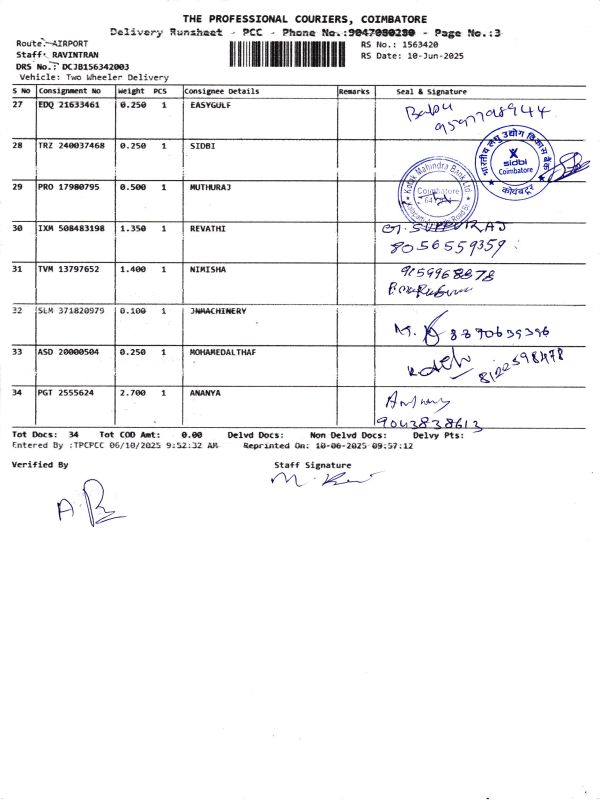 THE PROFESSIONAL COURIERS, COIMBATORE
Delivery Runsheet - PCC - Phone No.:9047080280 - Page No.:3
Route: AIRPORT RS No.: 1563420
Staff: RAVINTRAN RS Date: 10-Jun-2025
DRS No.: DCJB156342003
Vehicle: Two Wheeler Delivery
S No Consignment No Weight PCS Consignee Details Remarks Seal & Signature
27 EDQ 21633461 0.250 1 EASYGULF Babu
9597798944
28 TRZ 240037468 0.250 1 SIDBI
भारतीय लघु उद्योग विकास बैंक
sidbi
Coimbatore
कोयंबटूर
29 PRO 17980795 0.500 1 MUTHURAJ
Kotak Mahindra Bank Ltd
Coimbatore
30 IXM 508483198 1.350 1 REVATHI
8056559359
31 TVM 13797652 1.400 1 NIMISHA
32 SLM 371820979 0.100 1 JNMACHINERY
33 ASD 20000504 0.250 1 MOHAMEDALTHAF
34 PGT 2555624 2.700 1 ANANYA
9043838613
Tot Docs: 34 Tot COD Amt: 0.00 Delvd Docs: Non Delvd Docs: Delvy Pts:
Entered By :TPCPCC 06/10/2025 9:52:32 AM Reprinted On: 10-06-2025 09:57:12
Verified By Staff Signature